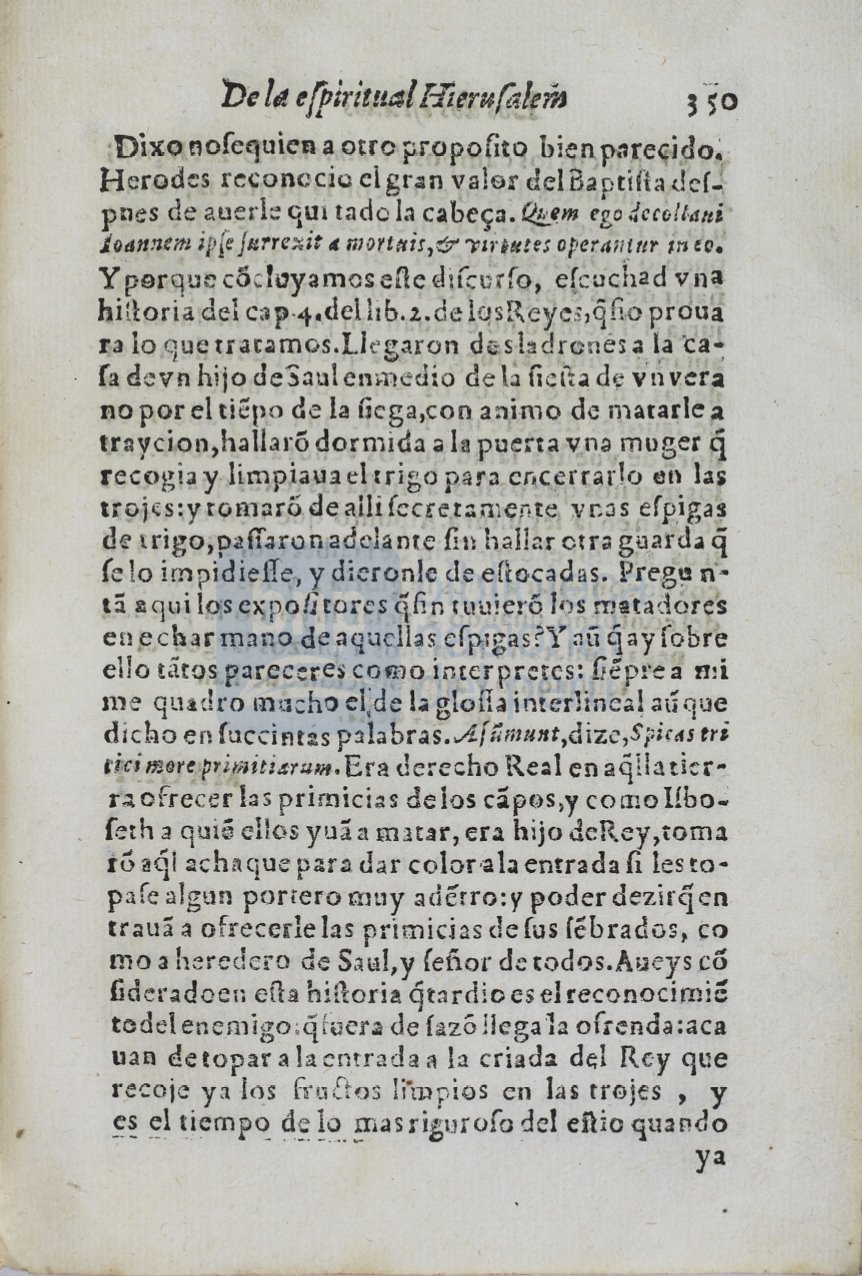 De la eſpiritual Hieruſalem̃ 350
Dixo noſequien a otro propoſito bien parecido.
Herodes reconocio el gran valor del Baptiſta deſ-
pues de auerle quitado la cabeça. Quem ego decollaui
Ioannem ipſe ſurrexit a mortuis, & virtutes operantur in eo.
Y porque cõcluyamos eſte diſcurſo, eſcuchad vna
hiſtoria del cap. 4. del lib. 2. de los Reyes, q̃ ſio proua
ra lo que tratamos. Llegaron dos ladrones a la ca-
ſa de vn hijo de Saul en medio de la ſieſta de vn vera
no por el tiẽpo de la ſiega, con animo de matarle a
traycion, hallarõ dormida a la puerta vna muger q̃
recogia y limpiaua el trigo para encerrarlo en las
trojes: y tomarõ de alli ſecretamente vnas eſpigas
de trigo, paſſaron adelante ſin hallar otra guarda q̃
ſe lo impidieſſe, y dieronle de eſtocadas. Pregu n-
tã aqui los expoſitores q̃ fin tuuierõ los matadores
en echar mano de aquellas eſpigas? Y aũ q̃ ay ſobre
ello tãtos pareceres como interpretes: ſiẽpre a mi
me quadro mucho el de la gloſſa interlineal aũque
dicho en ſuccintas palabras. Aſũmunt, dize, Spicas tri
tici more primitiarum. Era derecho Real en aq̃lla tier-
ra ofrecer las primicias de los cãpos, y como Iſbo-
ſeth a quiẽ ellos yuã a matar, era hijo de Rey, toma
rõ aq̃l achaque para dar color a la entrada ſi les to-
paſe algun portero muy adẽtro: y poder dezir q̃ en
trauã a ofrecerle las primicias de ſus ſẽbrados, co
mo a heredero de Saul, y ſeñor de todos. Aueys cõ
ſiderado en eſta hiſtoria q̃ tardio es el reconocimiẽ
to del enemigo: q̃ fuera de ſazõ llega la ofrenda: aca
uan de topar a la entrada a la criada del Rey que
recoje ya los fructos limpios en las trojes , y
es el tiempo de lo mas riguroſo del eſtio quando
ya